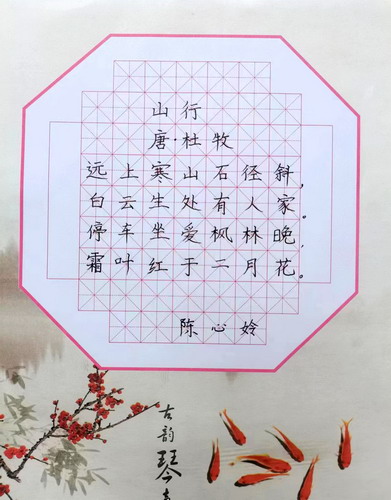 山行
唐·杜牧
远上寒山石径斜，
白云生处有人家。
停车坐爱枫林晚，
霜叶红于二月花。
陈心姈
古韵
琴